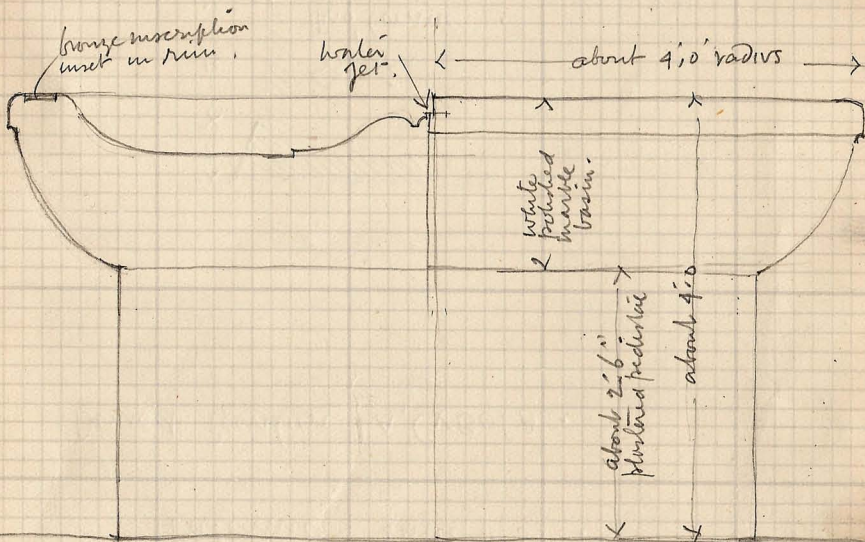 bronze inscription
inset in rim.
water
jet.
about 4',0" radius
white
polished
marble
basin.
about 2'.6"
plastered pedestal
about 4'.0